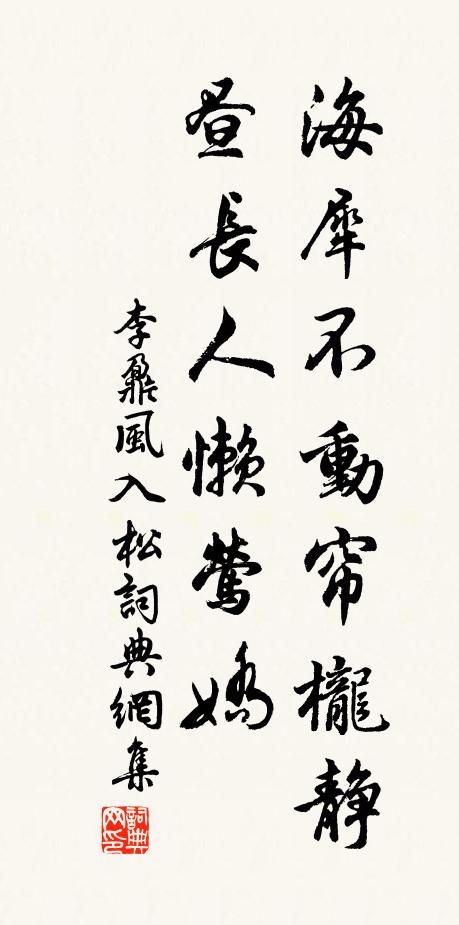 海犀不動帘櫳静
昼長人懶鶯嬌
李鼐風入松詞典網集
詞典网印